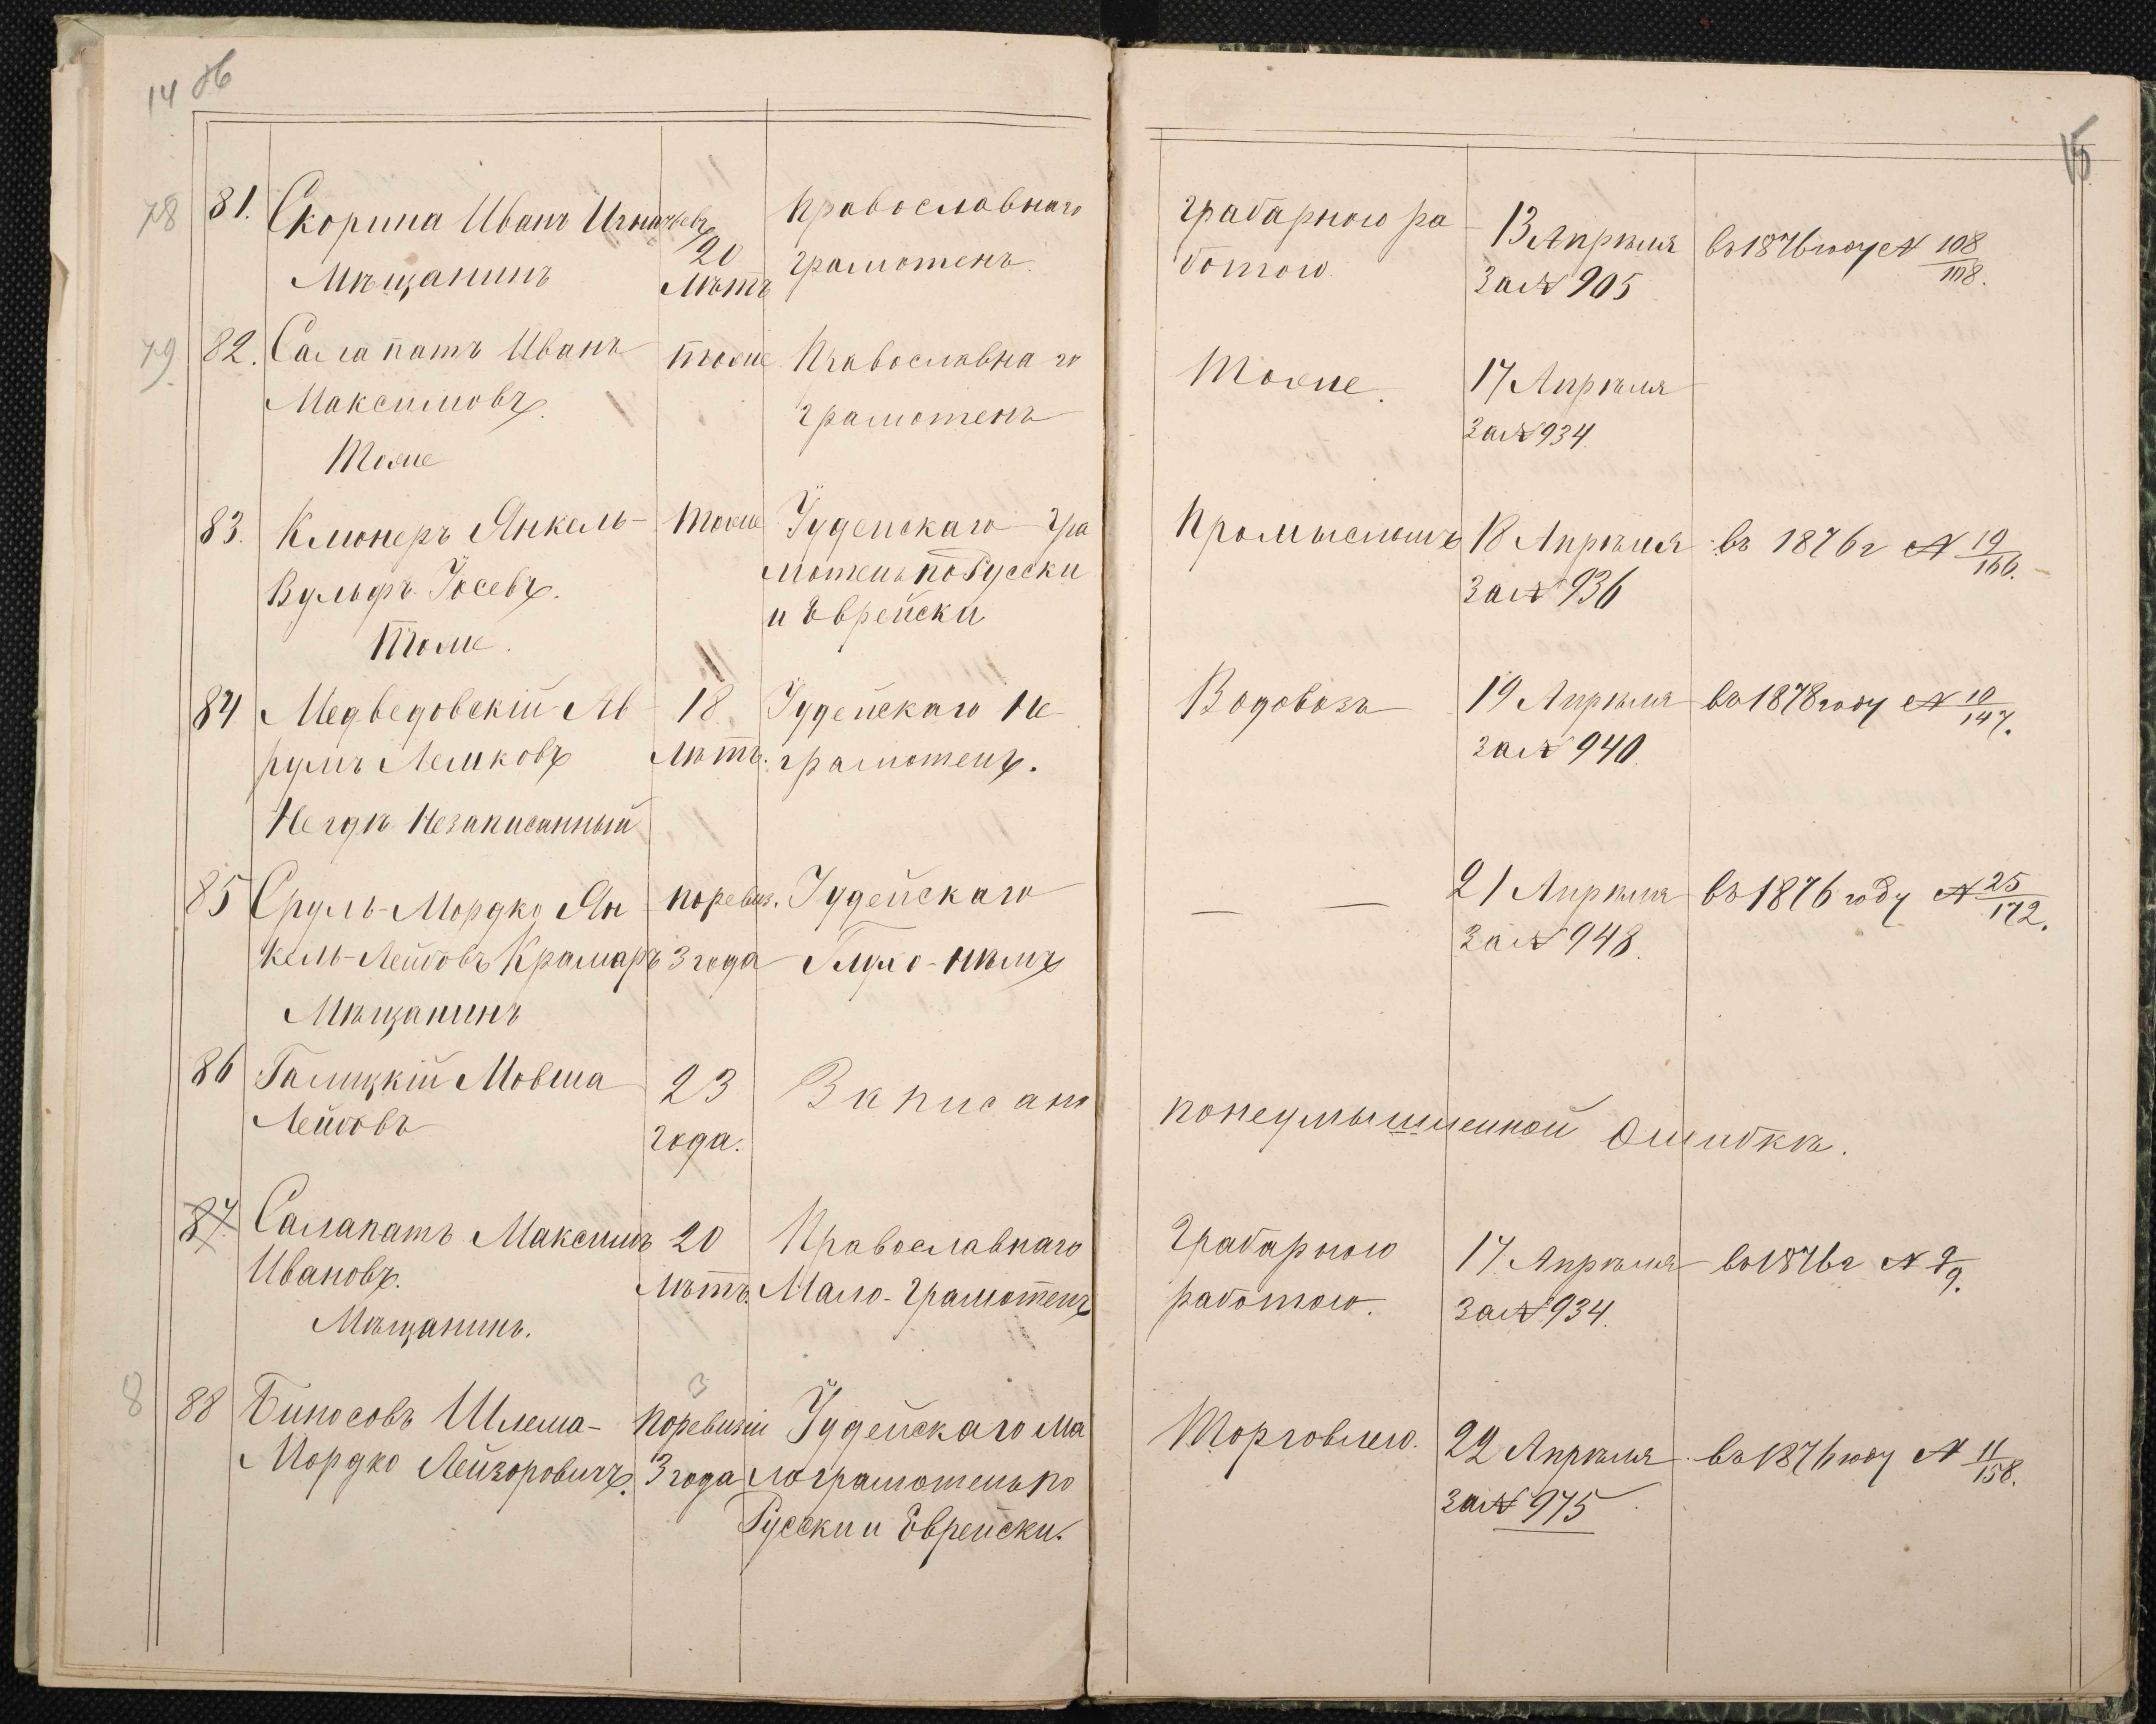 14 86
15
78 81. Скорина Иванъ Игнатьевъ 20 Православнаго грабарною ра 13 Апрѣля въ 1876 году № 108/108.
Мѣщанинъ лѣтъ грамотенъ. ботою. за № 905
79 82. Салапатъ Иванъ тоже Православнаго Тоже. 17 Апрѣля
Максимовъ. грамотенъ за № 934
Тоже
83. Клюнеръ Янкель- тоже Іудейскаго гра Промысломъ 18 Апрѣля въ 1876 г №
Вульфъ Іосевъ. мотенъ по Русски за № 936
Тоже. и Еврейски
84 Медведовскій Ав 18 Іудейскаго Не Водовозъ 19 Апрѣля въ 1878 году № 10/147.
румъ Лемковъ лѣтъ. грамотенъ. за № 940
Негдѣ Незаписанный
85 Сруль-Мордко Ян поревиз. Іудейскаго — — 21 Апрѣля въ 1876 году № 25/172.
кель-Лейбовъ Крамаръ 3 года Глухо-нѣмъ за № 948.
Мѣщанинъ
86 Галицкій Мовша 23 Записанъ понеумышленной Ошибкѣ.
Лейбовъ года.
87. Салапатъ Максимъ 20 Православнаго Грабарною 17 Апрѣля въ 1876 г № 9/9.
Ивановъ. лѣтъ. Мало-грамотенъ работою. за № 934.
Мѣщанинъ.
8 88 Биносовъ Шлема- поревизіи Іудейскаго ма Торговлею. 22 Апрѣля въ 1876 году № 11/158.
Мордко Лейзоровичъ. 3 года лограмотенъ по за № 975
Русски и Еврейски.